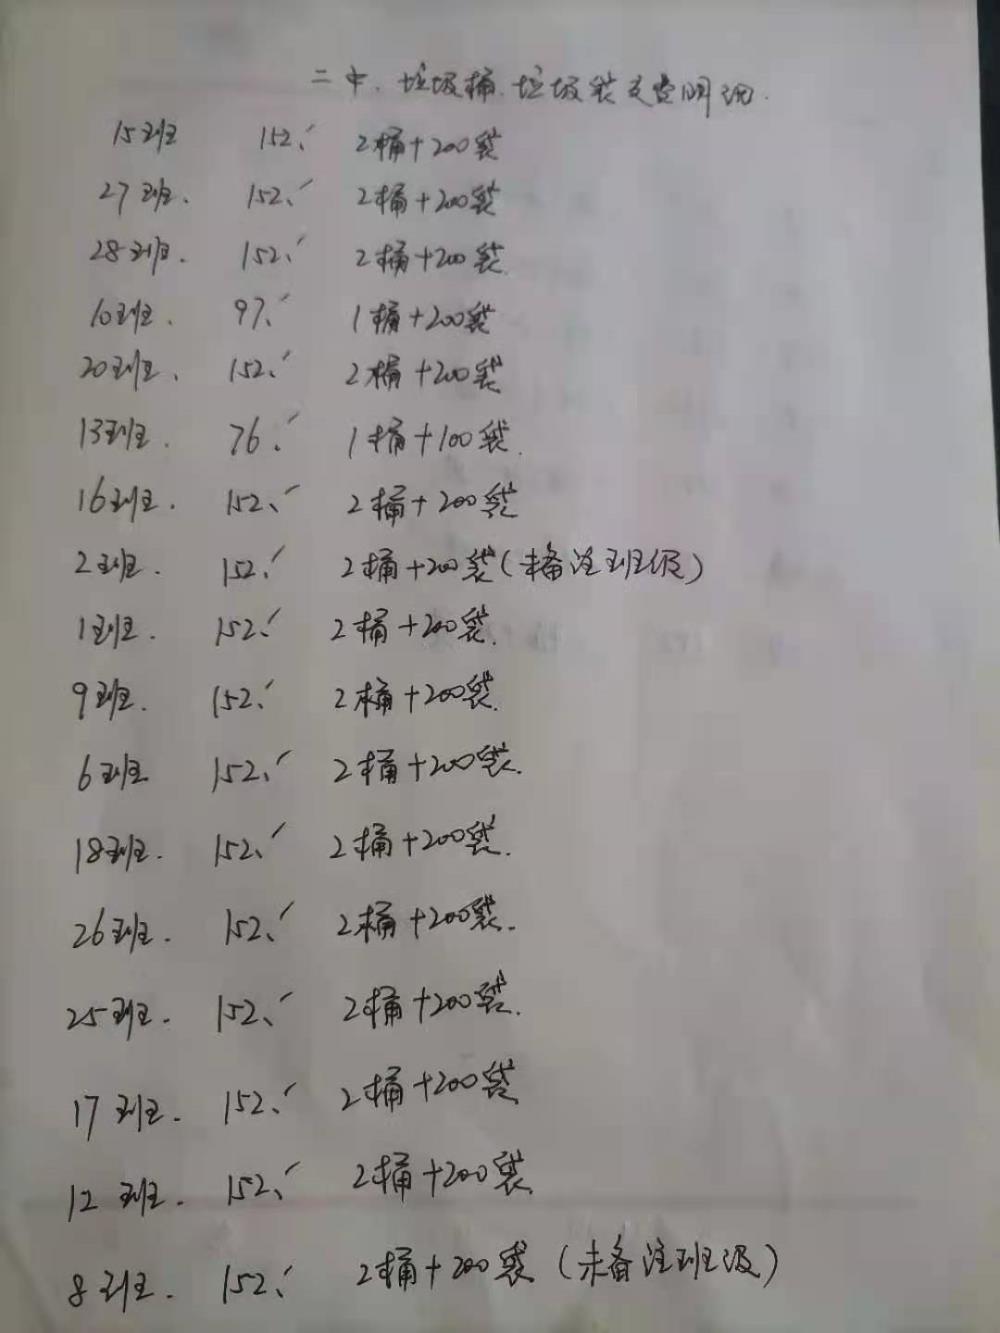 二中、垃圾桶、垃圾袋交费明细.
15班 152、✓ 2桶+200袋
27班. 152、✓ 2桶+200袋
28班. 152、✓ 2桶+200袋.
10班. 97、✓ 1桶+200袋
20班、 152、✓ 2桶+200袋
13班. 76、✓ 1桶+100袋.
16班. 152、✓ 2桶+200袋
2班. 152、✓ 2桶+200袋(未备注班级)
1班. 152、✓ 2桶+200袋.
9班. 152、✓ 2桶+200袋.
6班 152、✓ 2桶+200袋.
18班. 152、✓ 2桶+200袋.
26班. 152、✓ 2桶+200袋.
25班. 152、✓ 2桶+200袋.
17班. 152、✓ 2桶+200袋
12班. 152、✓ 2桶+200袋.
8班. 152、✓ 2桶+200袋(未备注班级)